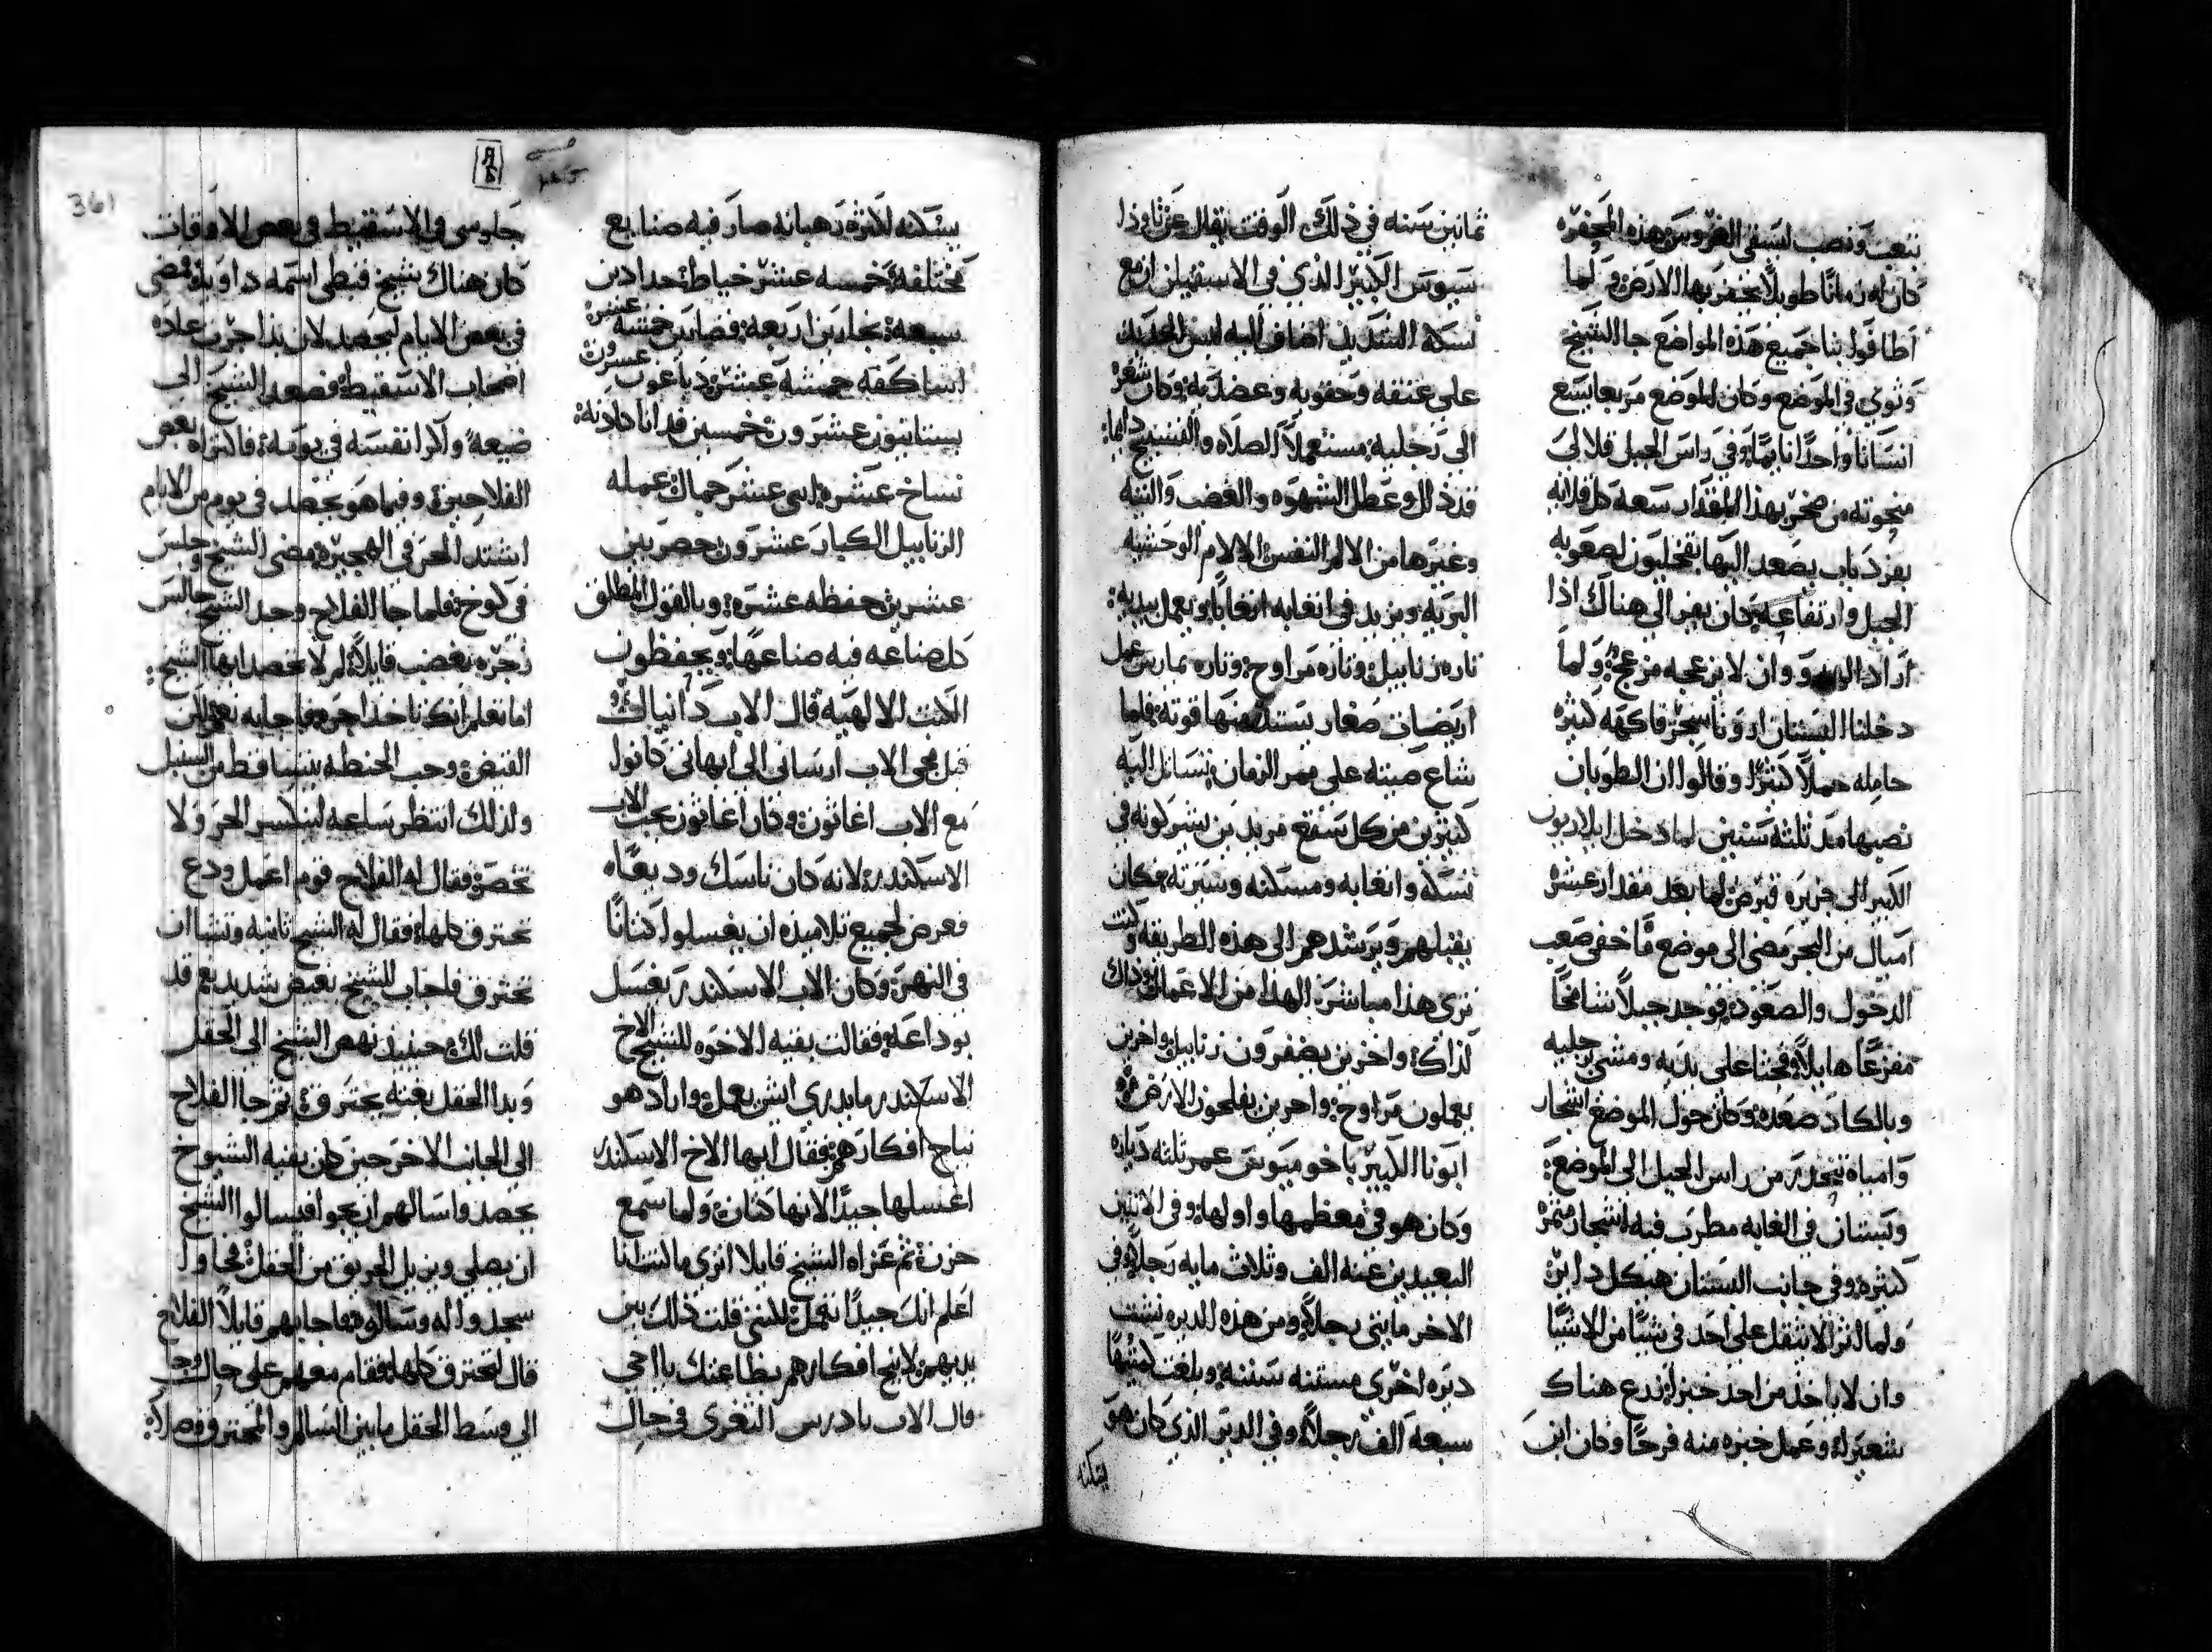 بتعب ونصب لسقي الغروس هذه المحفره
كان له زمانًا طويلًا يحفر بها الارض ولما
اطافوا بنا جميع هذه المواضع جا الشيخ
وثوي في الموضع وكان الموضع مربعا يسع
انسانا واحدًا نايمًا وفي راس الجبل قلالي
منحوته من صخر بهذا المقدار سعة كل قلايه
بغير باب يصعد اليها لصعوبه
الجبل وارتفاعه كان يفر الي هناك اذا
اراد الهدو وان لا يزعجه مزعج ولما
دخلنا البستان اورونا شجر فاكهه كثيره
حامله حملًا كثيرًا وقالوا ان الطوبان
نصبها مذ ثلثه سنين لما دخل ايلاريون
الكبير الي جزيره قبرص لما بعد مقدار عشره
اميال من البحر مضي الي موضع ما خفي صعب
الدخول والصعود فوجد جبلًا شامخًا
مفزعًا هايلًا فحبا علي يديه ومشي برجليه
وبالكاد صعده وكان حول الموضع اشجار
وامياه تنحدر من راس الجبل الي الموضع
وبستان في الغايه مطرب فيه اشجار مثمره
كثيره وفي جانب البستان هيكل داثر
ولما اثر الا يثقل علي احد في شيًا من الاشيا
وان لا ياخذ من احد خبزا زرع هناك
شعيرًا وعمل خبزه منه فرحًا وكان ابن
ثمانين سنه في ذلك الوقت يقال عن ثاوذا
سيوس الكبير الذي في الاسقيلن ان مع
نسكه الشديد اضاف اليه لبس الحديد
علي عنقه وحقويه وعضديه وكان شعره
الي رجليه مستعملًا الصلاه والتسبيح دايما
فذلل وعطل الشهوه والغضب والتيه
وغيرها من الالام النفس الالام الوحشيه
البريه ويزيد في اتعابه اتعابًا ويعمل بيديه
تاره زنابيل وتاره مراوح وتاره يمارس عمل
اريضيات صغار يستمد منها قوته فلما
شاع صيته علي ممر الزمان تسايل اليه
كثيرين من كل سقع مريدين يشركونه في
نسكه واتعابه ومسكنه وسيرته فكان
يقبلهم ويرشدهم الي هذه الطريقه وكنت
تري هذا مباشرًا لهذا من الاعمال وذاك
لذاك واخرين يضفرون زنابيل واخرين
يعملون مراوح واخرين يفلحون الارض
ابونا الكبير باخوميوس عمر ثلثه دياره
وكان هو في معظمها واولها وفي الاثنين
البعيدين عنه الف وثلاث مايه رجلًا في
الاخر مايتي رجلًا ومن هذه الديره نشت
ديره اخري مستنه سنته وبلغت كميتها
سبعة الف رجلًا وفي الدير الذي كان هو
يسكنه
يسكنه لكثره رهبانه صار فيه صنايع
مختلفه خمسه عشر خياط حدادين
سبعه نجارين اربعه قصارين خمسه عشره
اساكفه خمسه عشر دباغون عشرون
بستانيون عشرون خمسين
نساخ عشره اثني عشر جمال عمله
الزنابيل الكبار عشرون حصريين
عشرين حفظه عشره وبالقول المطلق
كل صناعه فيه صناعها ويحفظون
الكتب الالهيه قال الاب دانيال
قبل مجي الاب ارساني الي ابهاتي كانوا
مع الاب اغاثون وكان اغاثون يحب الاب
الاسكندر لانه كان ناسك وديعًا
فعرض لجميع تلاميذه ان يغسلوا كتانًا
في النهر وكان الاب الاسكندر يغسل
بوداعه فقالت بقيه الاخوه للشيخ الاخ
الاسكندر ما يدري ايش يعمل واراد هو
نياح افكارهم فقال ايها الاخ الاسكندر
اغسلها جيدًا لانها كتان ولما سمع
حزن ثم عزاه الشيخ قايلا اتري ما انا
اعلم انك جيدًا تعمل لكنني قلت ذلك بين
يديهم لانيح افكارهم بطاعتك يا اخي
قال الاب بادرس الثغري في حال
جلوسي في الاسقيط في بعض الاوقات
كان هناك شيخ قبطي اسمه داويد ومضي
في بعض الايام ليحصد لان بذا جرت عادة
اصحاب الاسقيط فصعد الشيخ الي
ضيعه واكرا نفسه في يومه فاكتراه بعض
الفلاحين وفيما هو يحصد في يوم من الايام
اشتد الحر في الهجيره مضي الشيخ وجلس
في كوخ فلما جا الفلاح وجد الشيخ جالس
زجره بغضب قايلًا لم لا تحصد ايها الشيخ
اما تعلم انك تاخذ اجره فاجابه نعم لكن
القيض وحب الحنطه يتساقط من السنبل
ولذلك انتظر ساعه لينكسر الحر ولا
تخصر فقال له الفلاح قوم اعمل ودع
تحترق كلها فقال له الشيخ ثانيه وتشا ان
تحترق فاجاب للشيخ بغيض شديد نعم قد
قلت لك حينيذ نهض الشيخ الي الحقل
وبدا الحقل بغته يحترق ثم جا الفلاح
الي الجانب الاخر حين كان بقيه الشيوخ
يحصدوا سالهم ان يجوا فيسالوا الشيخ
ان يصلي ويزيل الحريق من الحقل فجاوا
سجدوا له وسالوه فاجابهم قايلًا الفلاح
قال تحترق كلها فقام معهم علي حال وجا
الي وسط الحقل ما بين السالم والمحترق وصلا
361